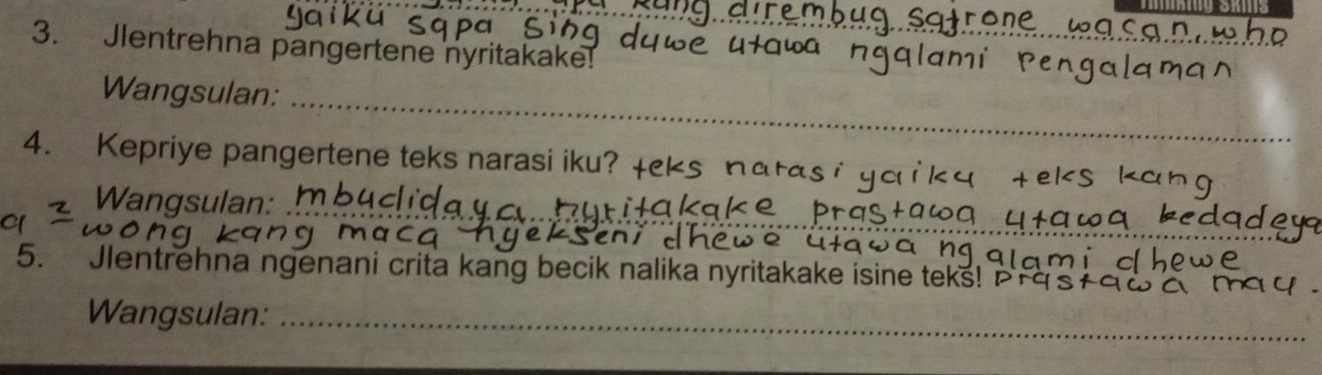 kang dirembug satrone wacan, who
yaiku sapa sing duwe utawa ngalami pengalaman
3. Jlentrehna pangertene nyritakake!
Wangsulan:
4. Kepriye pangertene teks narasi iku? teks narasi yaiku teks kang
Wangsulan: mbudidaya nyritakake prastawa utawa kedadeya
wong kang maca nyekseni dhewe utawa ngalami dhewe
5. Jlentrehna ngenani crita kang becik nalika nyritakake isine teks! prastawa mau.
Wangsulan: